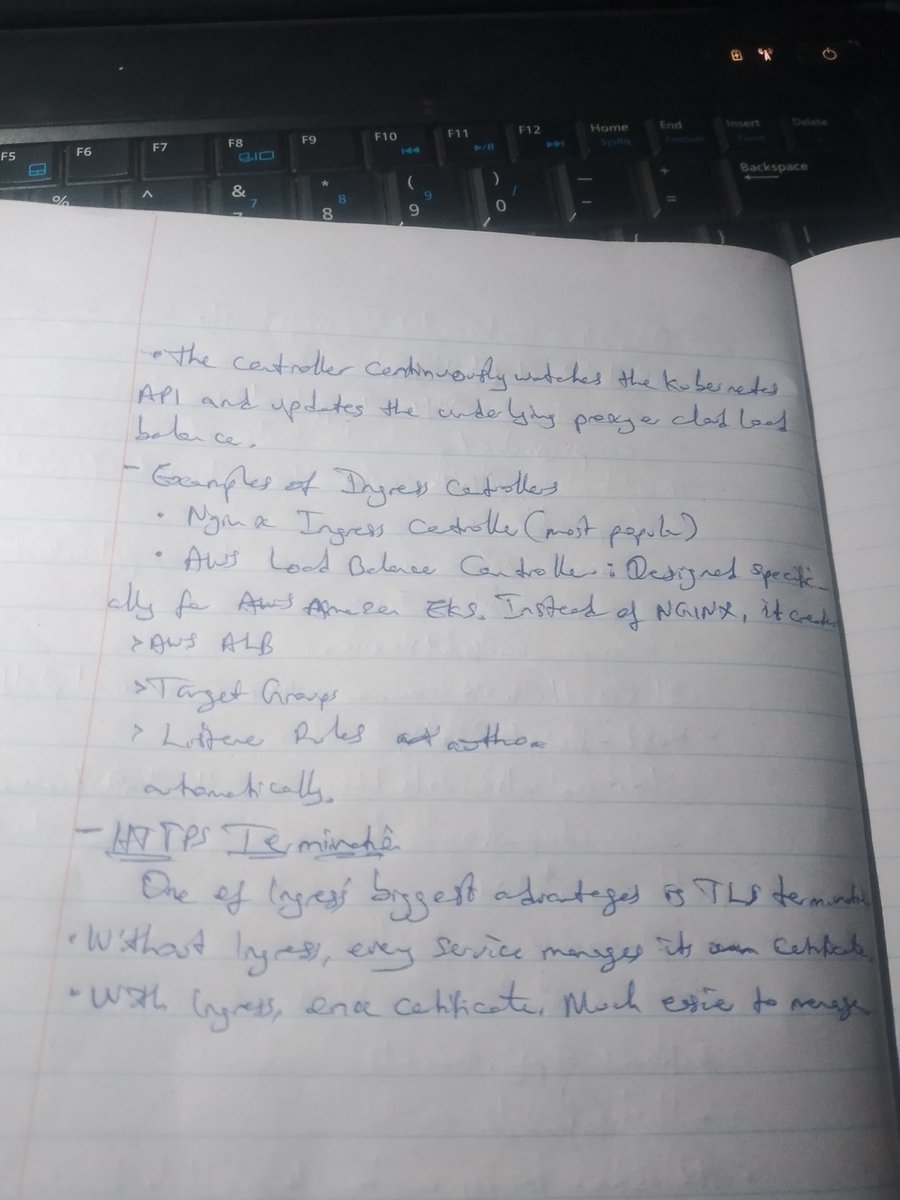 F5 F6 F7 F8 F9 F10 F11 F12 Home End Insert Delete
SysRq Pause
% ^ & 7 * 8 8 ( 9 9 ) 0 / _ - + = Backspace
• The controller continuously watches the Kubernetes
API and updates the underlying proxy or cloud load
balance.
- Examples of Ingress Controllers
• Nginx Ingress Controller (most popular)
• AWS Load Balance Controller: Designed specific-
ally for AWS Amazon EKS. Instead of NGINX, it creates
> AWS ALB
> Target Groups
> Listener Rules
automatically.
- HTTPS Termination
One of Ingress' biggest advantages is TLS termination
• Without Ingress, every service manages its own certificate.
• With Ingress, one certificate. Much easier to manage